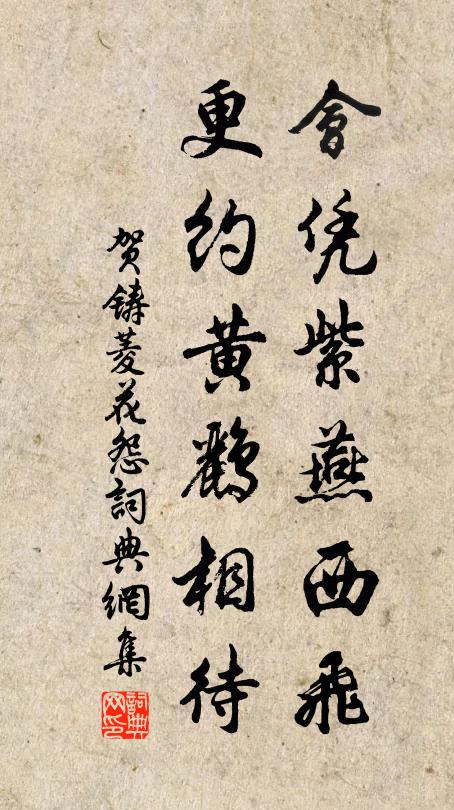 會凭紫燕西飛
更約黄鸝相待
贺鑄菱花怨詞典網集
詞典网印